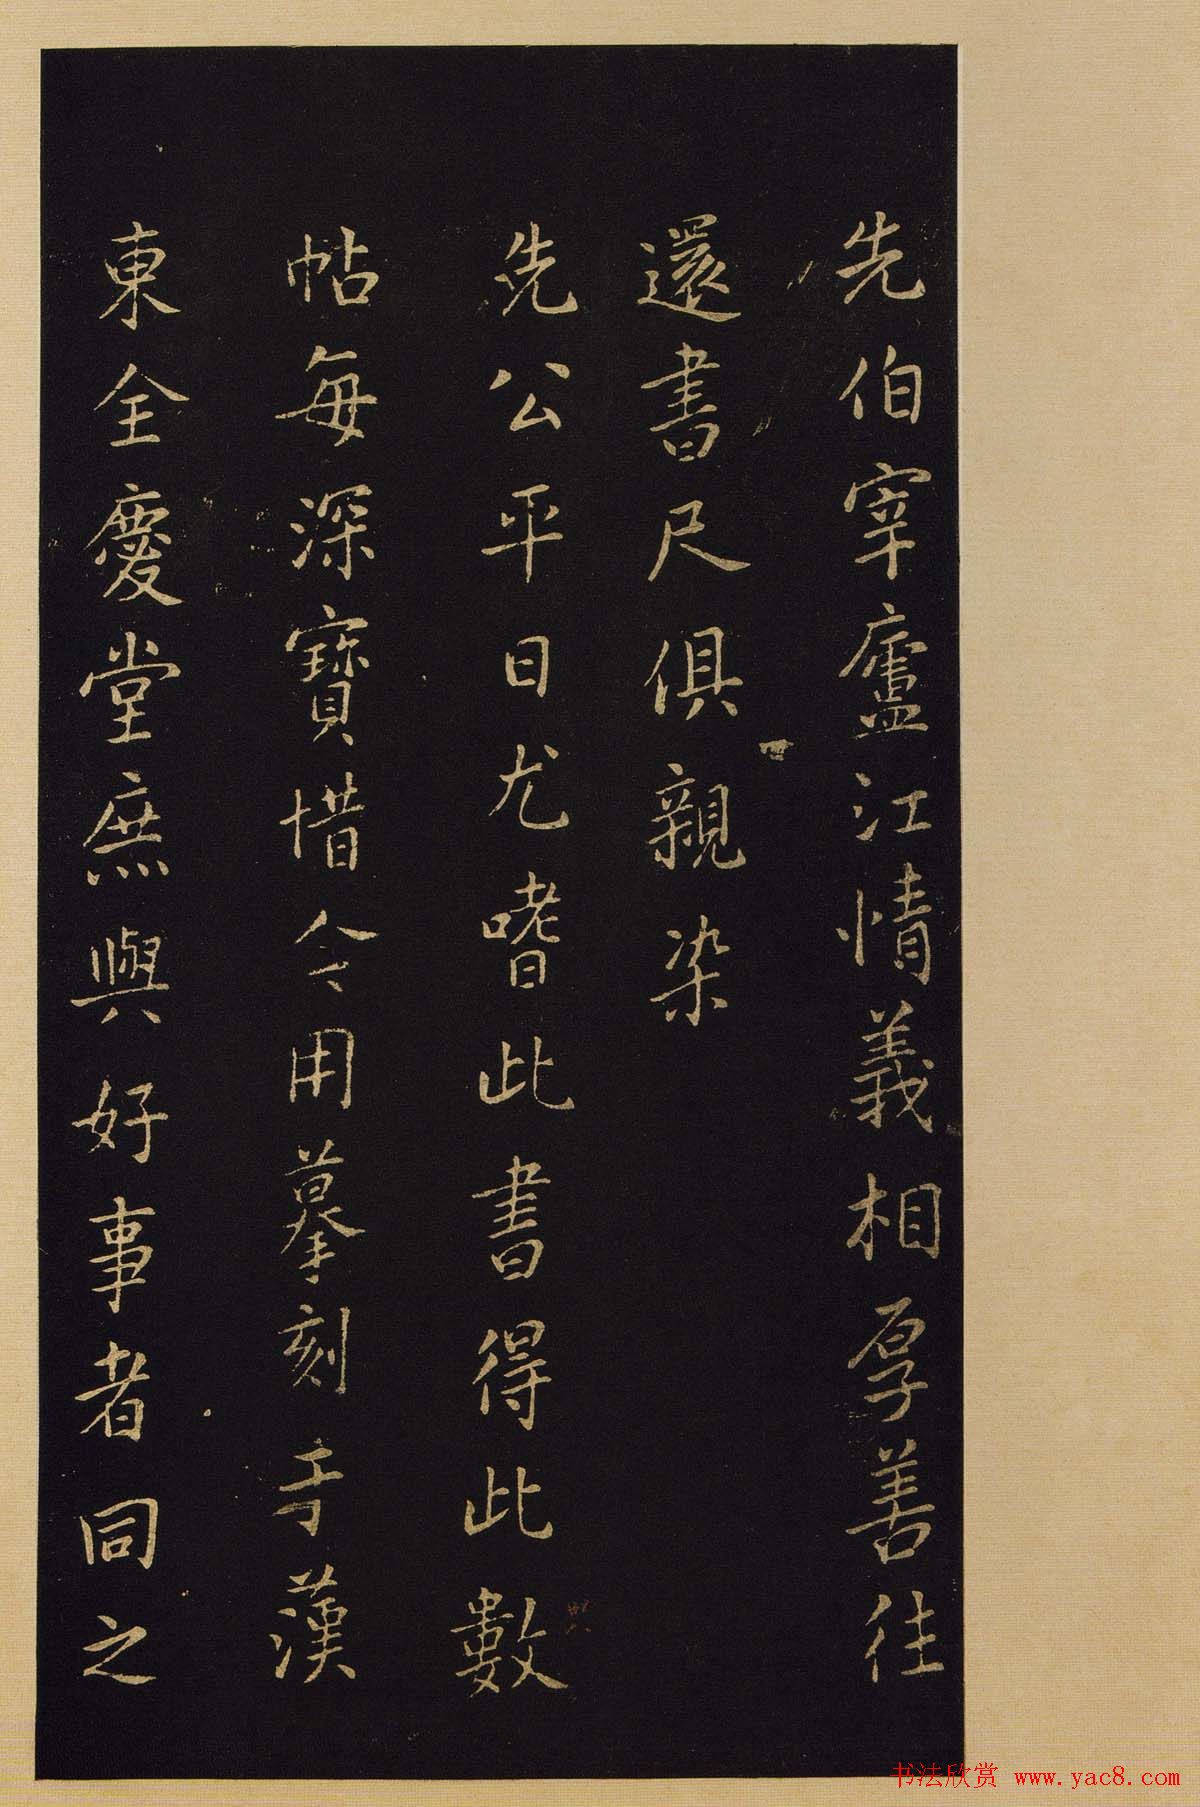 先伯宰廬江情義相厚善往
還書尺俱親染
先公平日尤嗜此書得此數
帖每深寶惜令用摹刻于漢
東全慶堂庶與好事者同之
书法欣赏 www.yac8.com